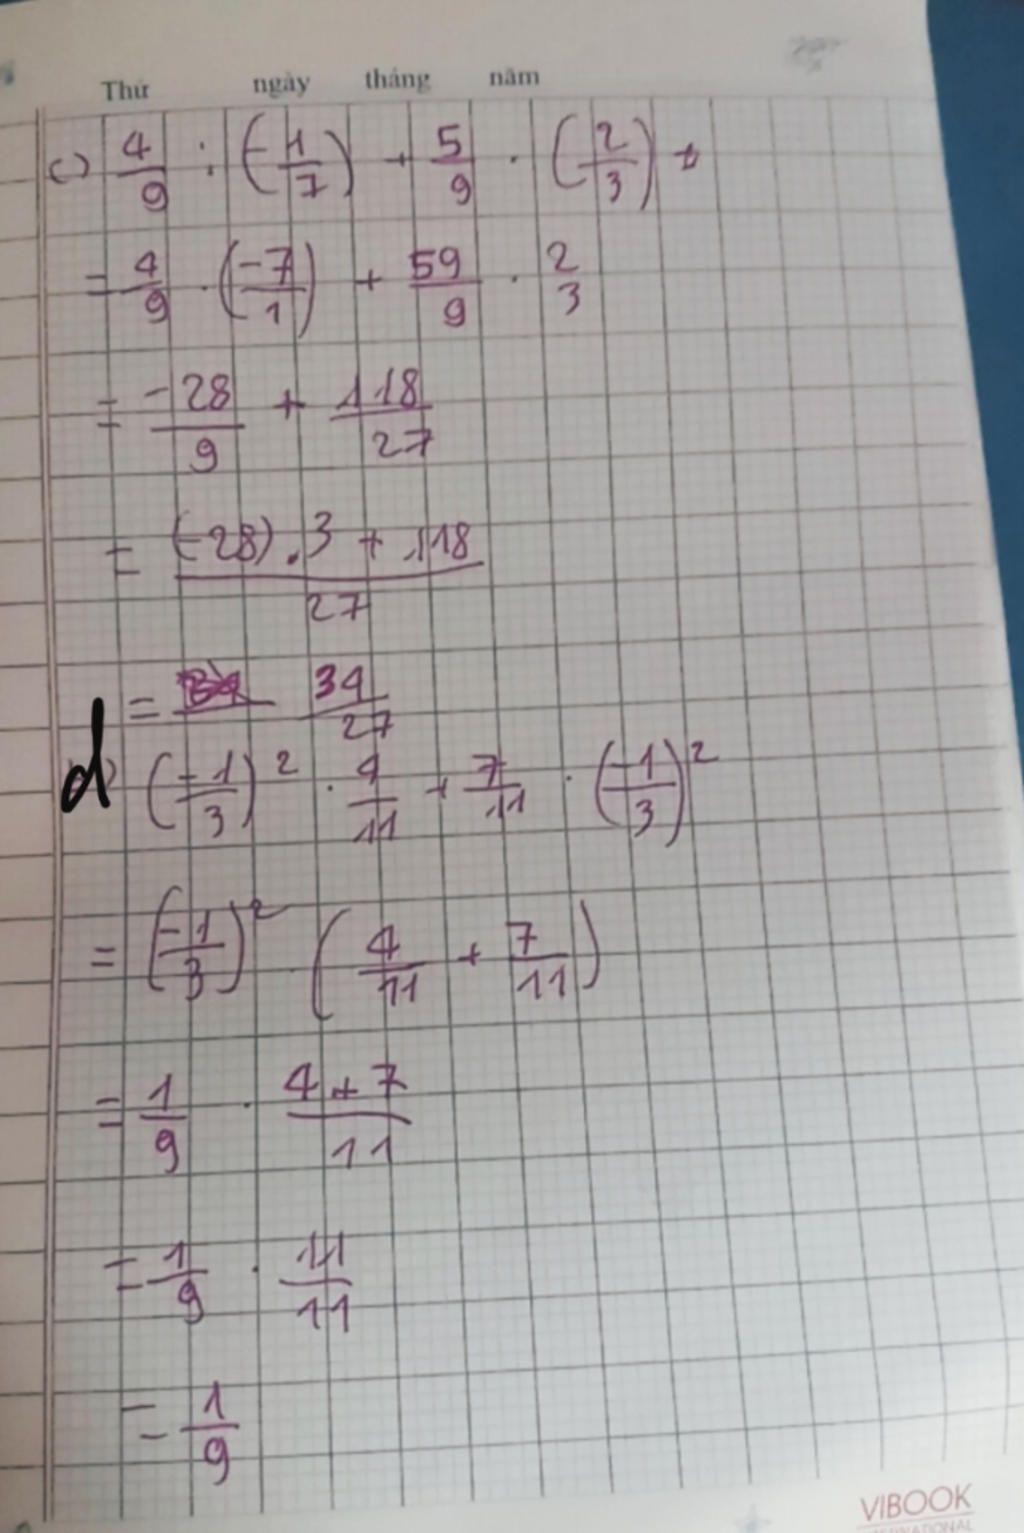 Thứ ngày tháng năm
c) 4/9 : (-1/7) + 5/9 . (-2/3) +
= 4/9 . (-7/1) + 59/9 . 2/3
= -28/9 + 118/27
= ((-28) . 3 + 118)/27
= 34/27
d) (-1/3)² . 4/11 + 7/11 . (-1/3)²
= (-1/3)² . (4/11 + 7/11)
= 1/9 . (4+7)/11
= 1/9 . 11/11
= 1/9
VIBOOK
INTERNATIONAL